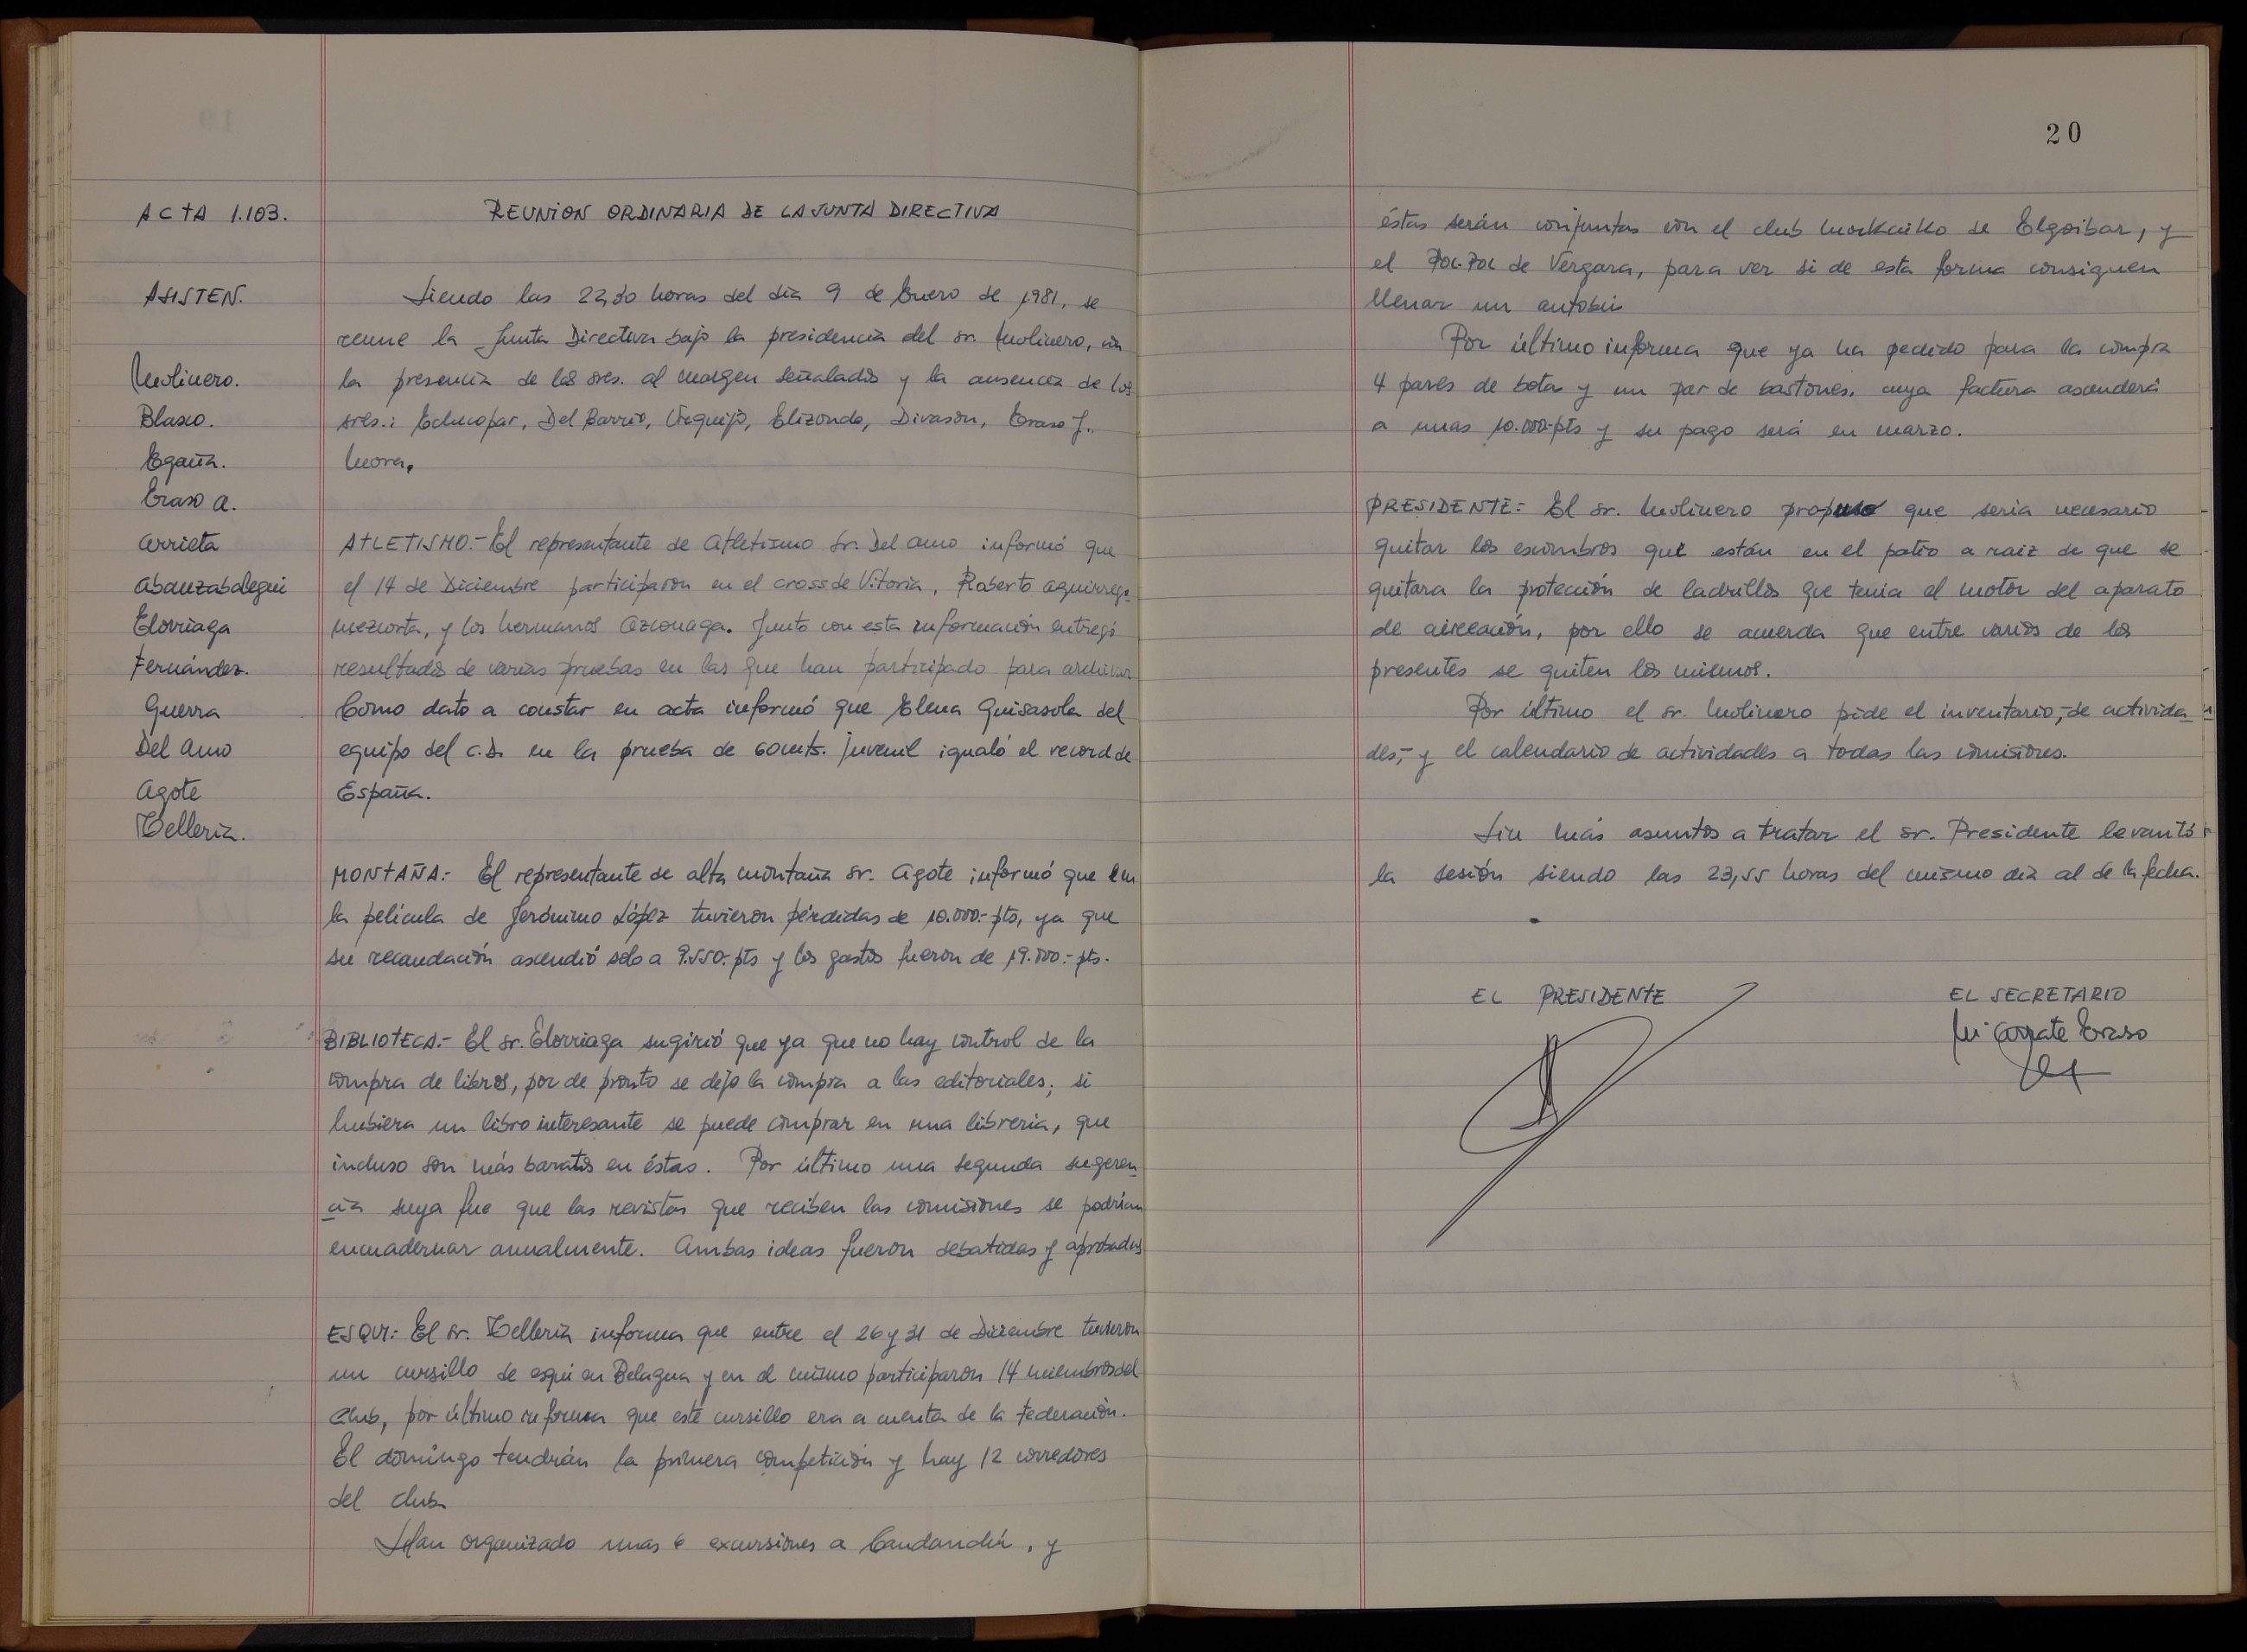 ACTA 1.103.
REUNION ORDINARIA DE LA JUNTA DIRECTIVA
ASISTEN.
Molinero.
Blasco.
Egaña.
Eraso A.
Arrieta
Abanzabalegui
Elorriaga
Fernández.
Guerra
Del Amo
Agote
Telleria.
Siendo las 22,30 horas del dia 9 de Enero de 1981, se
reune la Junta Directiva bajo la presidencia del sr. Molinero, con
la presencia de los sres. al margen señalados y la ausencia de los
sres.: Echucopar, Del Barrio, Urquijo, Elizondo, Divasón, Eraso J.,
Mora.
ATLETISMO.- El representante de Atletismo Sr. Del Amo informó que
el 14 de Diciembre participaron en el cross de Vitoria, Roberto Aguirrego-
mezcorta, y los hermanos Azconaga. Junto con esta información entregó
resultados de varias pruebas en las que han participado para archivar
Como dato a constar en acta informó que Elena Guisasola del
equipo del C.D. en la prueba de 60 mts. juvenil igualó el record de
España.
MONTAÑA:- El representante de alta montaña Sr. Agote informó que en
la película de Jerónimo López tuvieron pérdidas de 10.000.- pts, ya que
su recaudación ascendió solo a 9.550.- pts y los gastos fueron de 19.500.- pts.
BIBLIOTECA.- El sr. Elorriaga sugirió que ya que no hay control de la
compra de libros, por de pronto se dejo la compra a las editoriales; si
hubiera un libro interesante se puede comprar en una libreria, que
incluso son más baratos en éstas. Por último una segunda sugeren-
cia suya fue que las revistas que reciben las comisiones se podrían
encuadernar anualmente. Ambas ideas fueron debatidas y aprobadas
ESQUI: El sr. Telleria informa que entre el 26 y 31 de Diciembre tuvieron
un cursillo de esqui en Belagua y en el mismo participaron 14 miembros del
Club, por último informa que este cursillo era a cuenta de la Federación.
El domingo tendrán la primera competición y hay 12 corredores
del club.
Han organizado unas 6 excursiones a Candanchú, y
20
éstas serán conjuntas con el club Morkaiko de Elgoibar, y
el Pol-Pol de Vergara, para ver si de esta forma consiguen
llenar un autobús
Por último informa que ya ha pedido para la compra
4 pares de botas y un par de bastones, cuya factura ascenderá
a unas 10.000-pts y su pago será en marzo.
PRESIDENTE:- El sr. Molinero propuso que seria necesario
quitar los escombros que están en el patio a raiz de que se
quitara la protección de ladrillos que tenia el motor del aparato
de aireación, por ello se acuerda que entre varios de los
presentes se quiten los mismos.
Por último el sr. Molinero pide el inventario,- de activida-
des,- y el calendario de actividades a todas las comisiones.
Sin más asuntos a tratar el sr. Presidente levantó
la sesión siendo las 23,55 horas del mismo dia al de la fecha.
EL PRESIDENTE
EL SECRETARIO